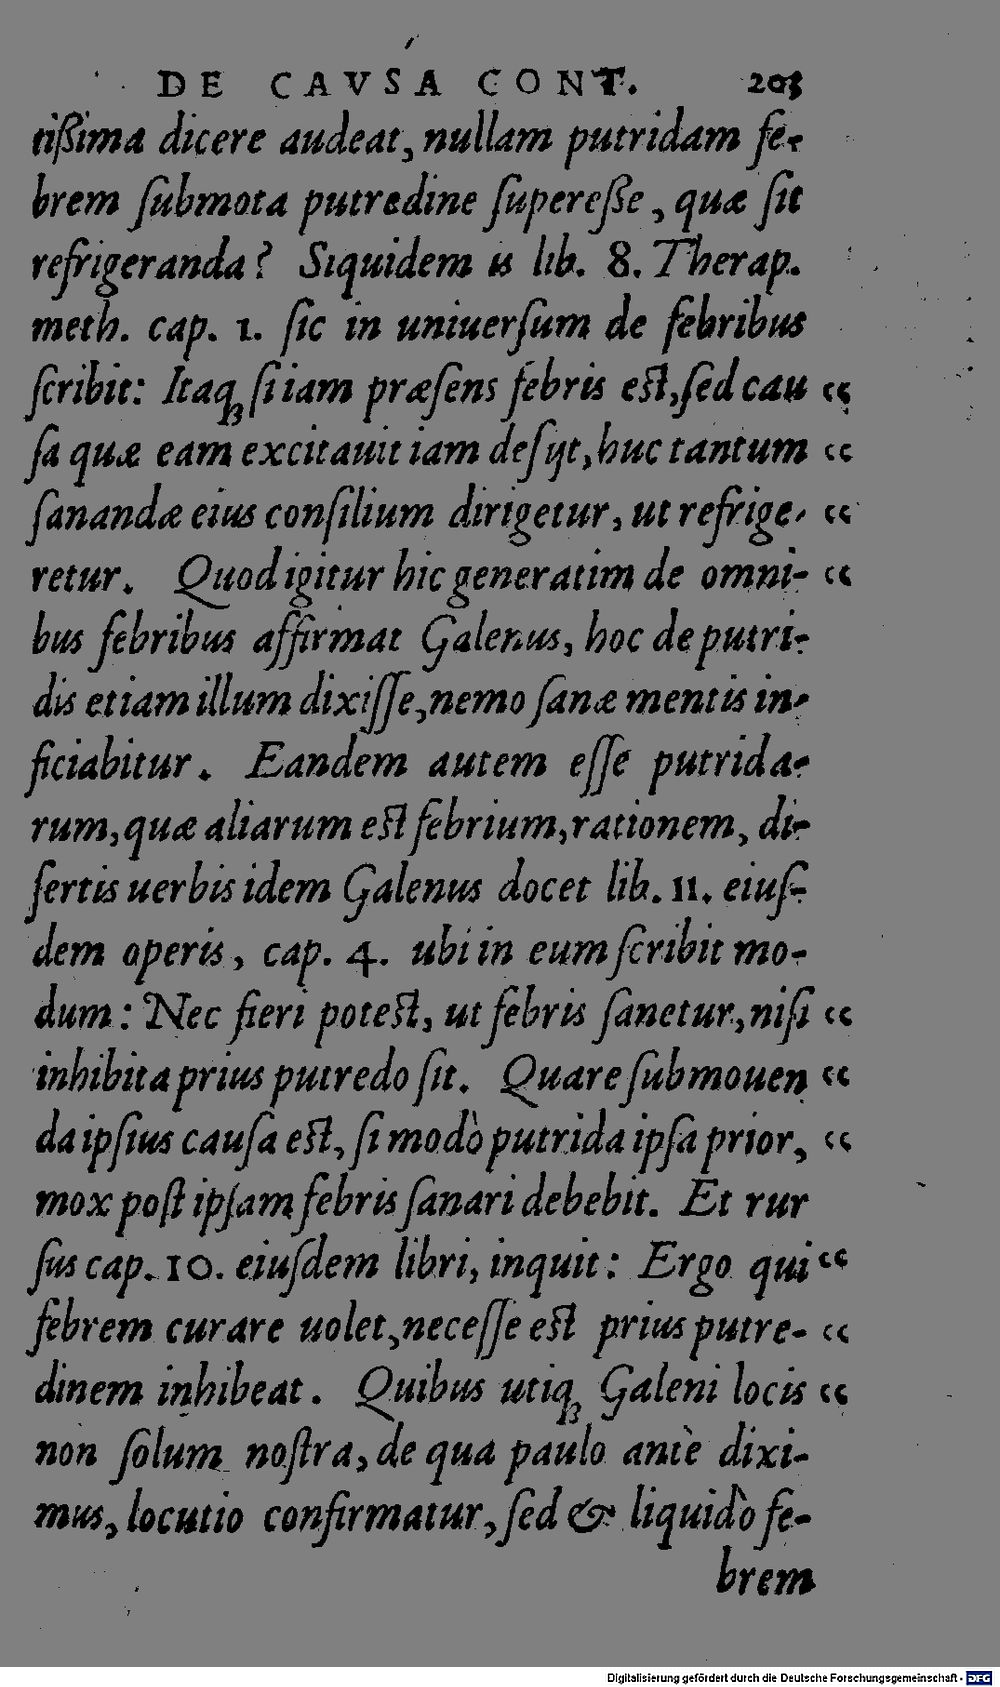 DE CAVSA CONT. 203
tißima dicere audeat, nullam putridam fe-
brem ſubmota putredine ſupereße, quæ ſit
refrigeranda? Siquidem is lib. 8. Therap.
meth. cap. 1. ſic in uniuerſum de febribus
ſcribit: Itaqꝫ ſi iam præſens febris eſt, ſed cau “
ſa quæ eam excitauit iam deſijt, huc tantum “
ſanandæ eius conſilium dirigetur, ut refrige- “
retur. Quod igitur hic generatim de omni- “
bus febribus affirmat Galenus, hoc de putri-
dis etiam illum dixiſſe, nemo ſanæ mentis in-
ficiabitur. Eandem autem eſſe putrida-
rum, quæ aliarum eſt febrium, rationem, di-
ſertis uerbis idem Galenus docet lib. 11. eiuſ-
dem operis, cap. 4. ubi in eum ſcribit mo-
dum: Nec fieri poteſt, ut febris ſanetur, niſi “
inhibita prius putredo ſit. Quare ſubmouen “
da ipſius cauſa eſt, ſi modò putrida ipſa prior, “
mox poſt ipſam febris ſanari debebit. Et rur
ſus cap. 10. eiuſdem libri, inquit: Ergo qui “
febrem curare uolet, neceſſe eſt prius putre- “
dinem inhibeat. Quibus utiqꝫ Galeni locis “
non ſolum noſtra, de qua paulo antè dixi-
mus, locutio confirmatur, ſed & liquidò fe-
brem
Digitalisierung gefördert durch die Deutsche Forschungsgemeinschaft - DFG